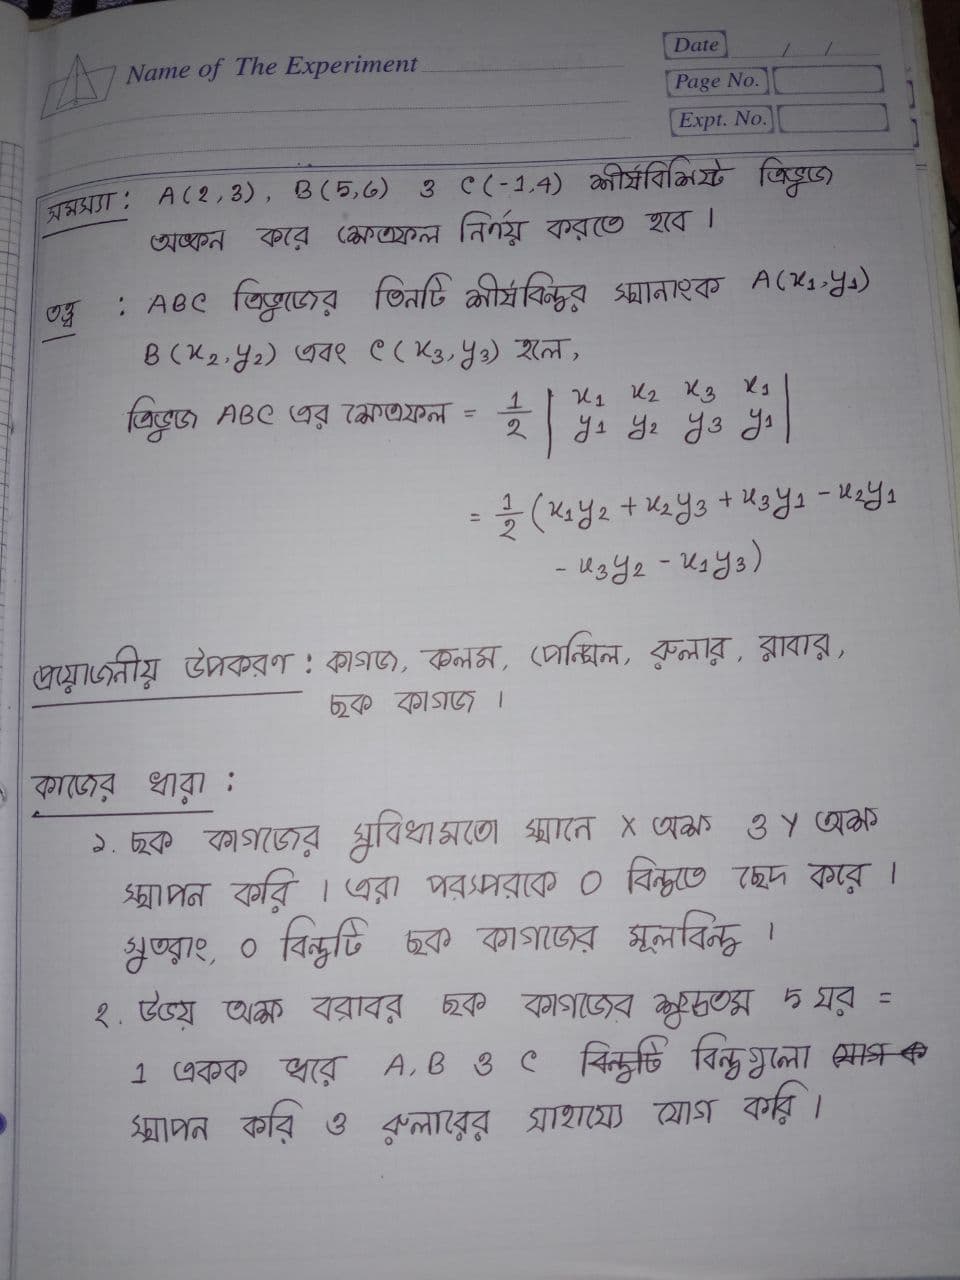 Name of The Experiment
Date / /
Page No.
Expt. No.
সমস্যা : A(2,3), B(5,6) ও C(-1,4) শীর্ষবিশিষ্ট ত্রিভুজ
অঙ্কন করে ক্ষেত্রফল নির্ণয় করতে হবে ।
তত্ত্ব : ABC ত্রিভুজের তিনটি শীর্ষবিন্দুর স্থানাংক A(x₁,y₁)
B(x₂,y₂) এবং C(x₃,y₃) হলে,
ত্রিভুজ ABC এর ক্ষেত্রফল = 1/2 | x₁ x₂ x₃ x₁
y₁ y₂ y₃ y₁ |
= 1/2 (x₁y₂ + x₂y₃ + x₃y₁ - x₂y₁
- x₃y₂ - x₁y₃)
প্রয়োজনীয় উপকরণ : কাগজ, কলম, পেন্সিল, রুলার, রাবার,
ছক কাগজ ।
কাজের ধারা :
১. ছক কাগজের সুবিধামতো স্থানে X অক্ষ ও Y অক্ষ
স্থাপন করি । এরা পরস্পরকে O বিন্দুতে ছেদ করে ।
সুতরাং, O বিন্দুটি ছক কাগজের মূলবিন্দু ।
২. উভয় অক্ষ বরাবর ছক কাগজের ক্ষুদ্রতম ৫ ঘর =
1 একক ধরে A, B ও C বিন্দুটি বিন্দুগুলো
স্থাপন করি ও রুলারের সাহায্যে যোগ করি ।